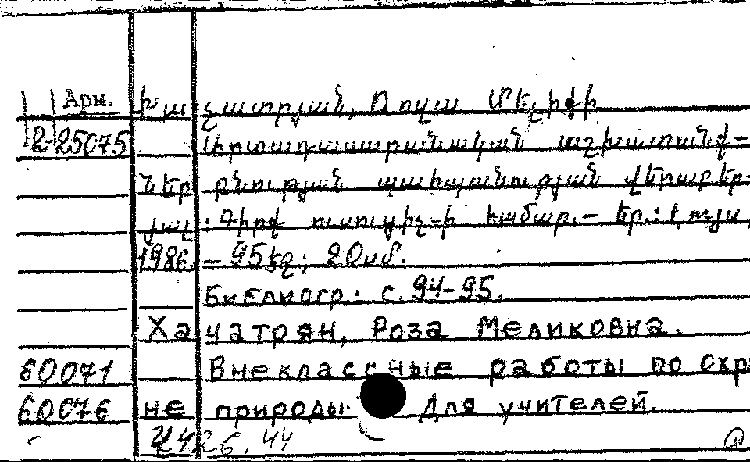 Арм. Խաչատրյան, Ռոզա Մելիքի
2-25075 Արտադասարանական աշխատանք-
ներ բնության պահպանության վերաբեր-
յալ: Գիրք ուսուցիչ-ի համար.- Եր.: Լույս,
1986.- 95 էջ; 20 սմ.
Библиогр.: с. 94-95.
Хачатрян, Роза Меликовна.
60071 Внеклассные работы по охра
60076 не природы. Для учителей.